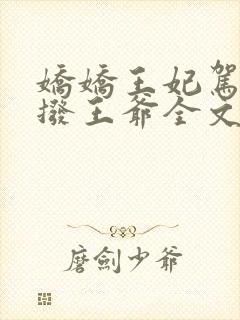 嬌嬌王妃駕
撥王爺全文
磨劍少爺